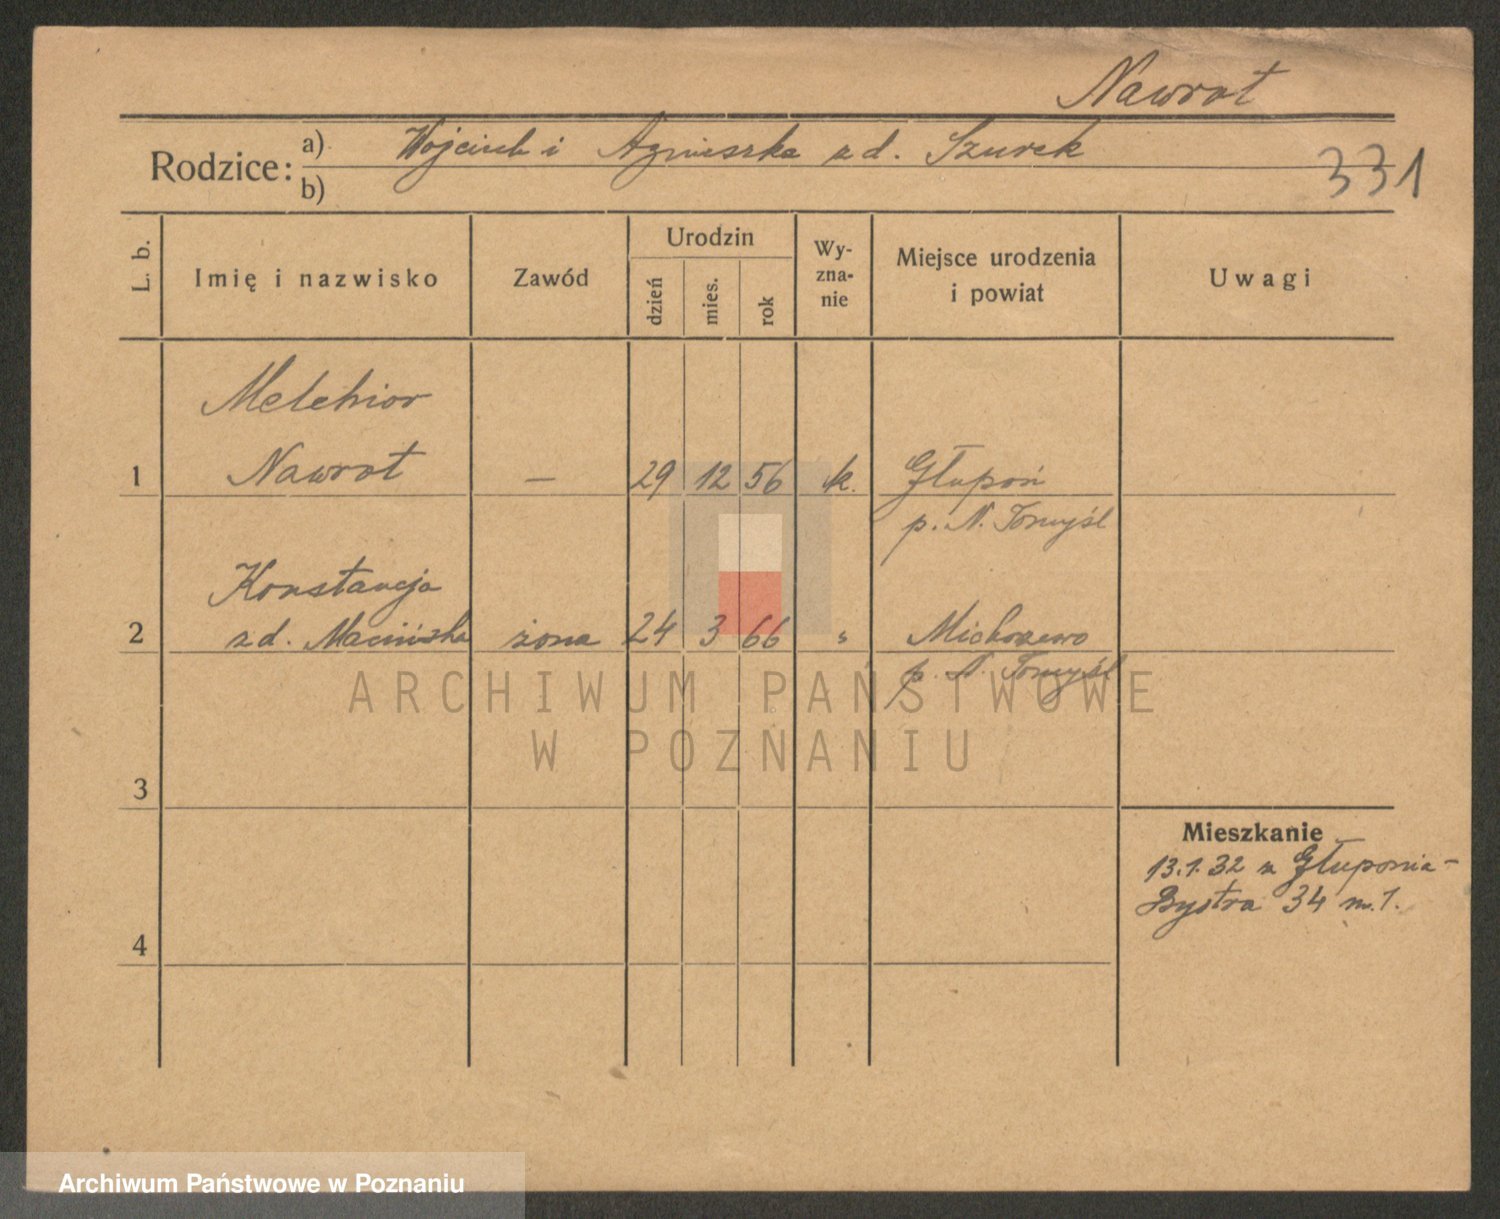 Nawrot
Rodzice:
a) Wojciech i Agnieszka z d. Szurek
b)
331
L. b.
Imię i nazwisko
Zawód
Urodzin
dzień
mies.
rok
Wy-
zna-
nie
Miejsce urodzenia
i powiat
Uwagi
Melchior
1 Nawrot — 29 12 56 k. Głupoń
p. N. Tomyśl
Konstancja
2 z d. żona 24 3 66 " Michorzewo
p. N. Tomyśl
3
4
Mieszkanie
13.1.32 z Głuponia-
Bystra 34 m. 1.
ARCHIWUM PAŃSTWOWE
W POZNANIU
Archiwum Państwowe w Poznaniu